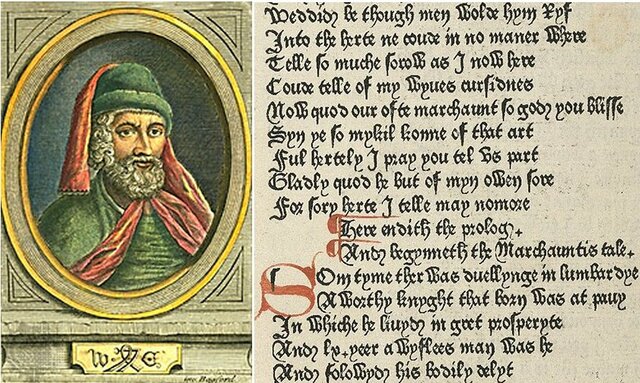 W C
Inv. Bagford
Weddid, be though men wolde hym ryf
Into the herte ne coude in no maner where
Telle so muche sorow as I now here
Coude telle of my wyues cursidnes
Now quod our ofte marchaunt so god, you blisse
Syn ye so mykil konne of that art
Ful hertely I pray you tel vs part
Gladly quod he but of myn owen sore
For sory herte I telle may nomore
Here endith the prolog,
And, begynneth the Marchauntis tale,
Som tyme ther was duellynge in lumbardye
A worthy knyght that born was at pauy
In whiche he liuyd, in gret prosperyte
And, lx, yeer a wyflees man was he
And, folowyd, his bodily delyt